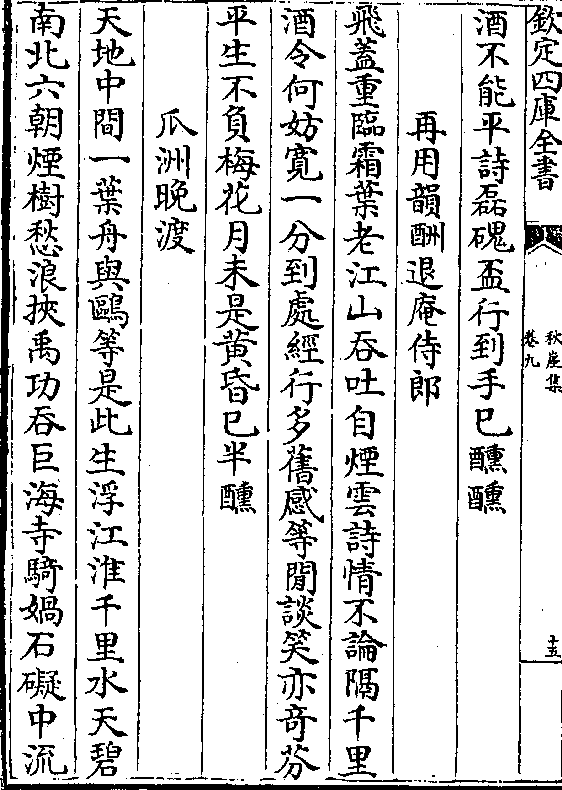 欽定四庫全書
秋崖集
卷九
十五
酒不能平詩磊磈盃行到手已醺醺
再用韻酬退庵侍郎
飛蓋重臨霜葉老江山吞吐自煙雲詩情不論隔千里
酒令何妨寬一分到處經行多舊感等閒談笑亦奇芬
平生不負梅花月未是黄昏已半醺
瓜洲晚渡
天地中間一葉舟與鷗等是此生浮江淮千里水天碧
南北六朝煙樹愁浪挾禹功吞巨海寺騎媧石礙中流